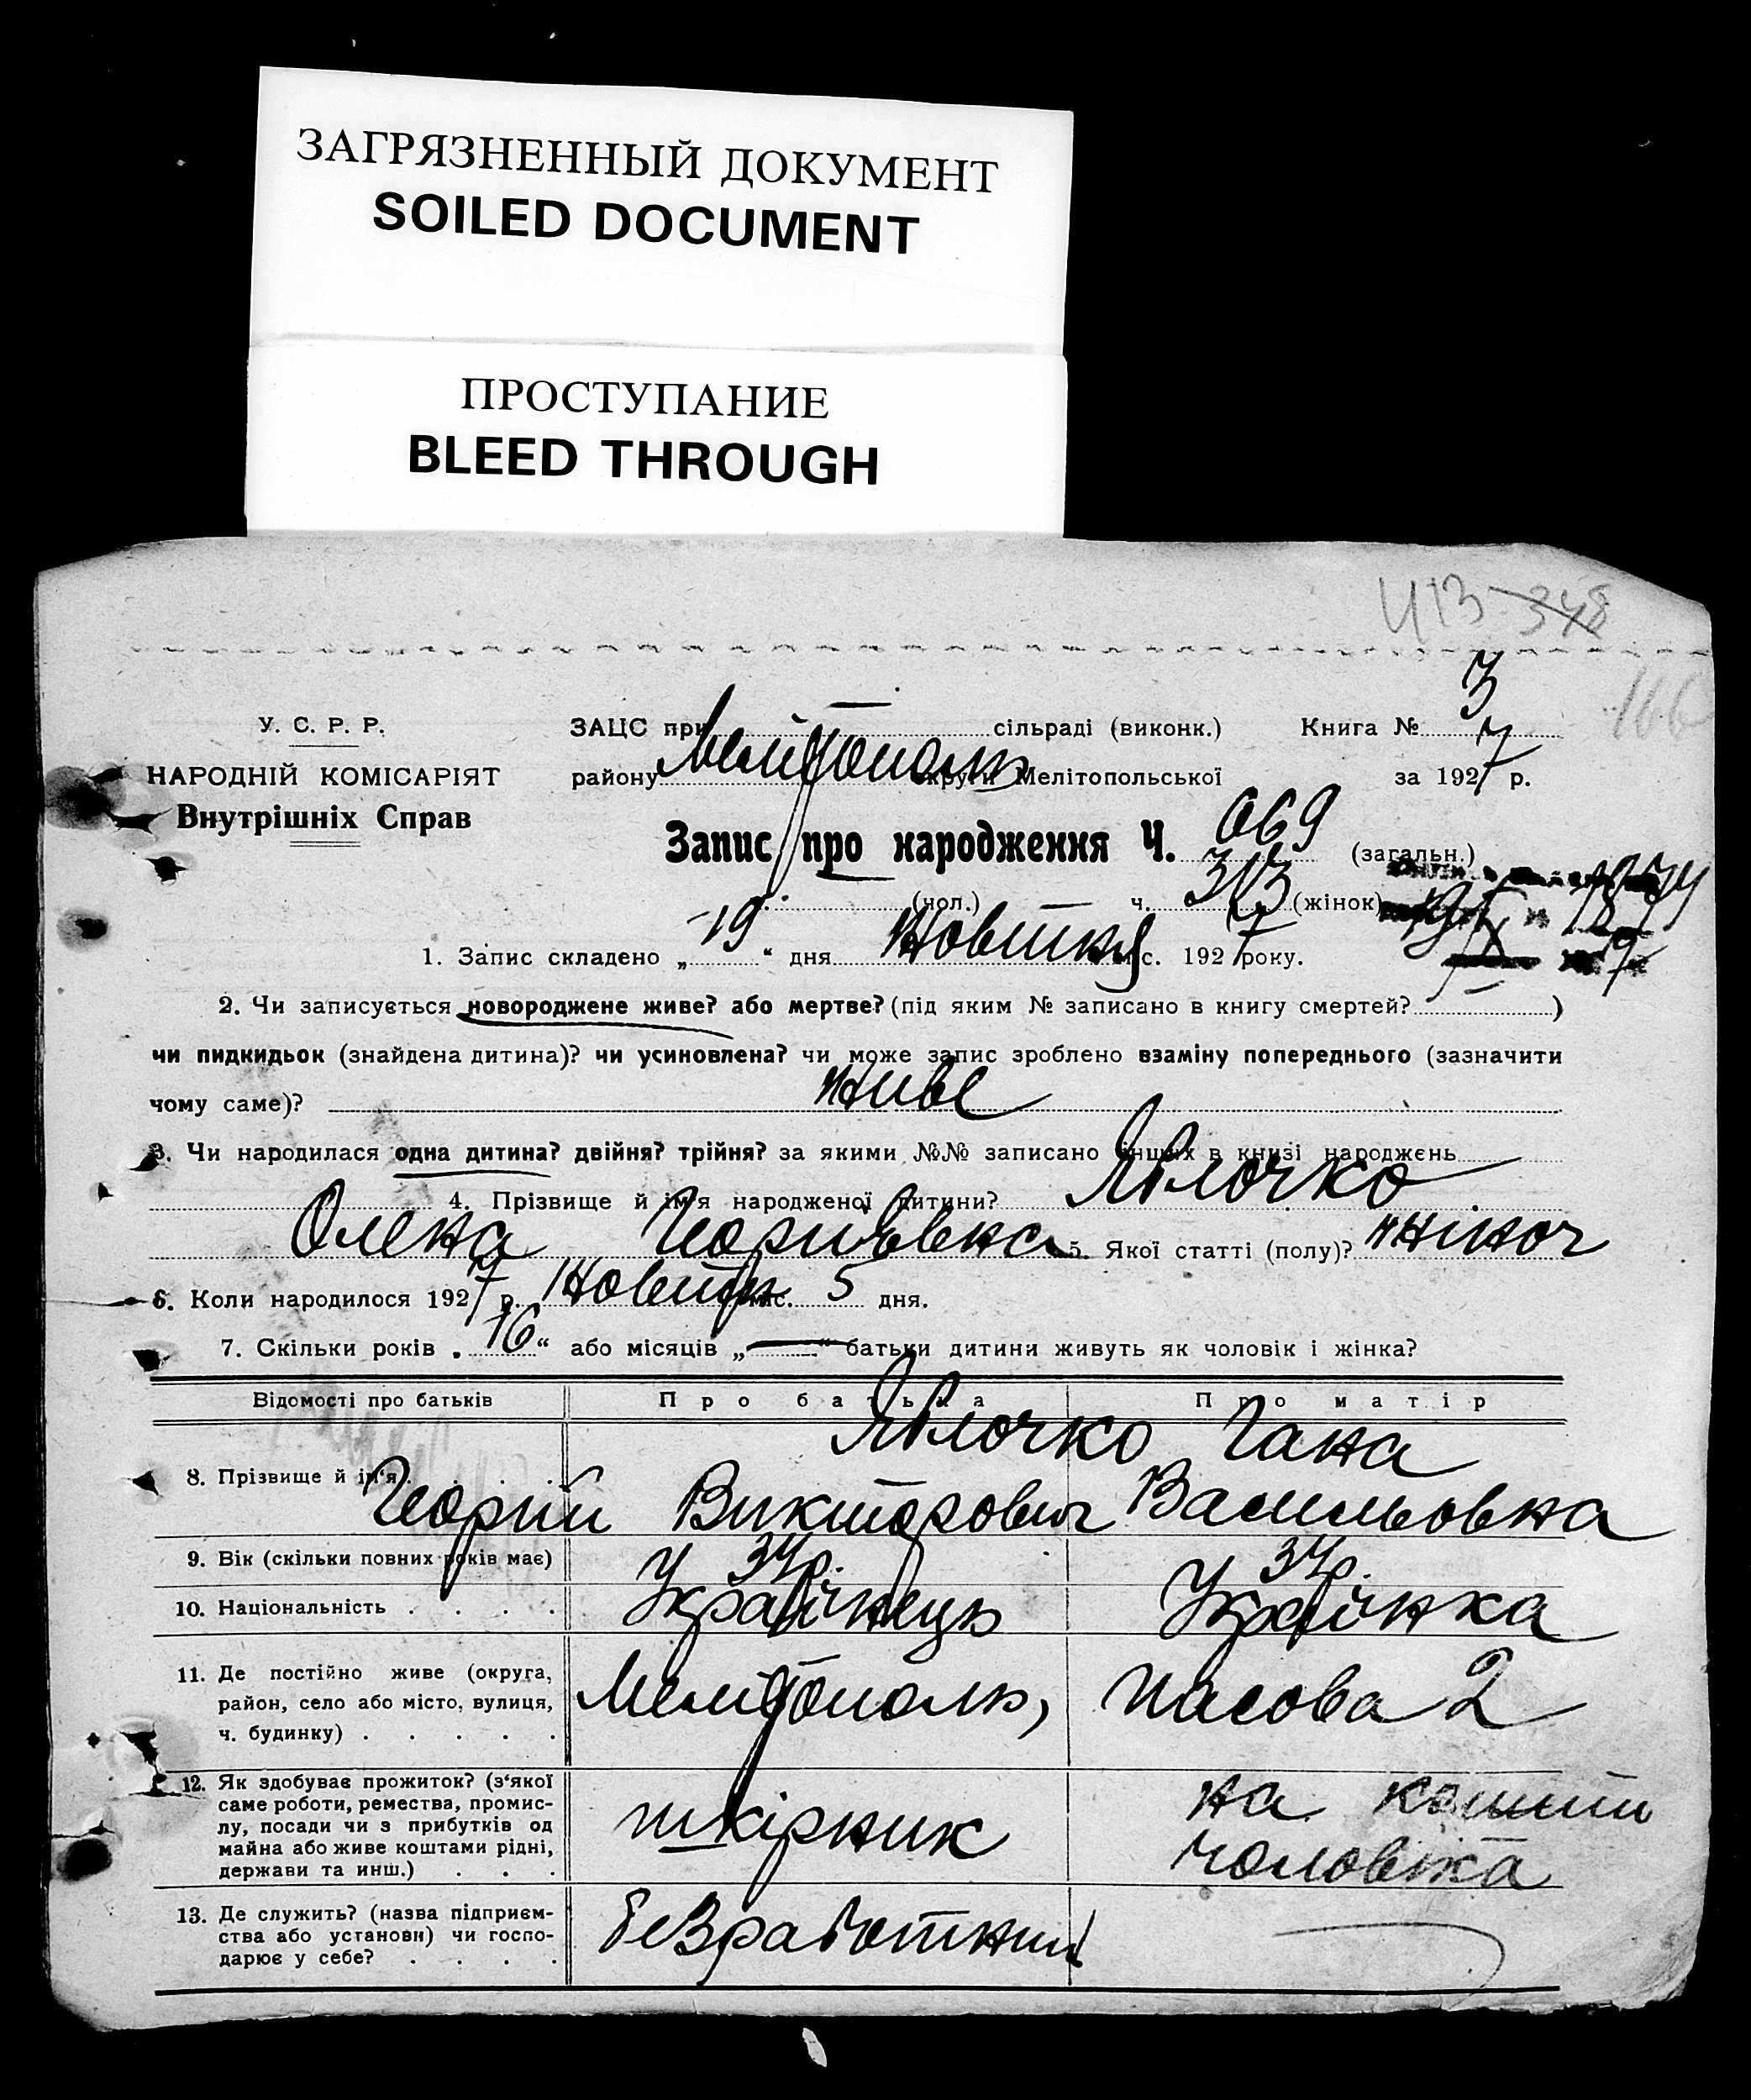 ЗАГРЯЗНЕННЫЙ ДОКУМЕНТ
SOILED DOCUMENT
ПРОСТУПАНИЕ
BLEED THROUGH
413 348
166
У. С. Р. Р.
НАРОДНІЙ КОМІСАРІЯТ
Внутрішніх Справ
ЗАЦС при сільраді (виконк.) Книга № 3
району Мелітополь округи Мелітопольської за 1927 р.
Запис про народження Ч. 669 (загальн.)
ч. (чол.) ч. 313 (жінок)
1. Запис складено „19“ дня Жовтня міс. 1927 року.
2. Чи записується новороджене живе? або мертве? (під яким № записано в книгу смертей? — )
чи пидкидьок (знайдена дитина)? чи усиновлена? чи може запис зроблено взаміну попереднього (зазначити
чому саме)? живе
3. Чи народилася одна дитина? двійня? трійня? за якими №№ записано інших в книзі народжень
4. Прізвище й ім'я народженої дитини? Яблочко
Олена Георгіївна 5. Якої статті (полу)? жіноч
6. Коли народилося 1927 р. Жовтн міс. 5 дня.
7. Скільки років „16“ або місяців „—“ батьки дитини живуть як чоловік і жінка?
Відомості про батьків Про батька Про матір
Яблочко Гана
8. Прізвище й ім'я . . . .
Георгій Викторович Васильовна
9. Вік (скільки повних років має) 34р. 34р.
10. Національність . . . . Українець Українка
11. Де постійно живе (округа,
район, село або місто, вулиця,
ч. будинку) . . . . .
Мелітополь, 2
12. Як здобуває прожиток? (з'якої
саме роботи, ремества, промис-
лу, посади чи з прибутків од
майна або живе коштами рідні,
держави та инш.) . . .
шкірник
на кошти
чоловіка
13. Де служить? (назва підприєм-
ства або установи) чи госпо-
дарює у себе? . . . .
безработний